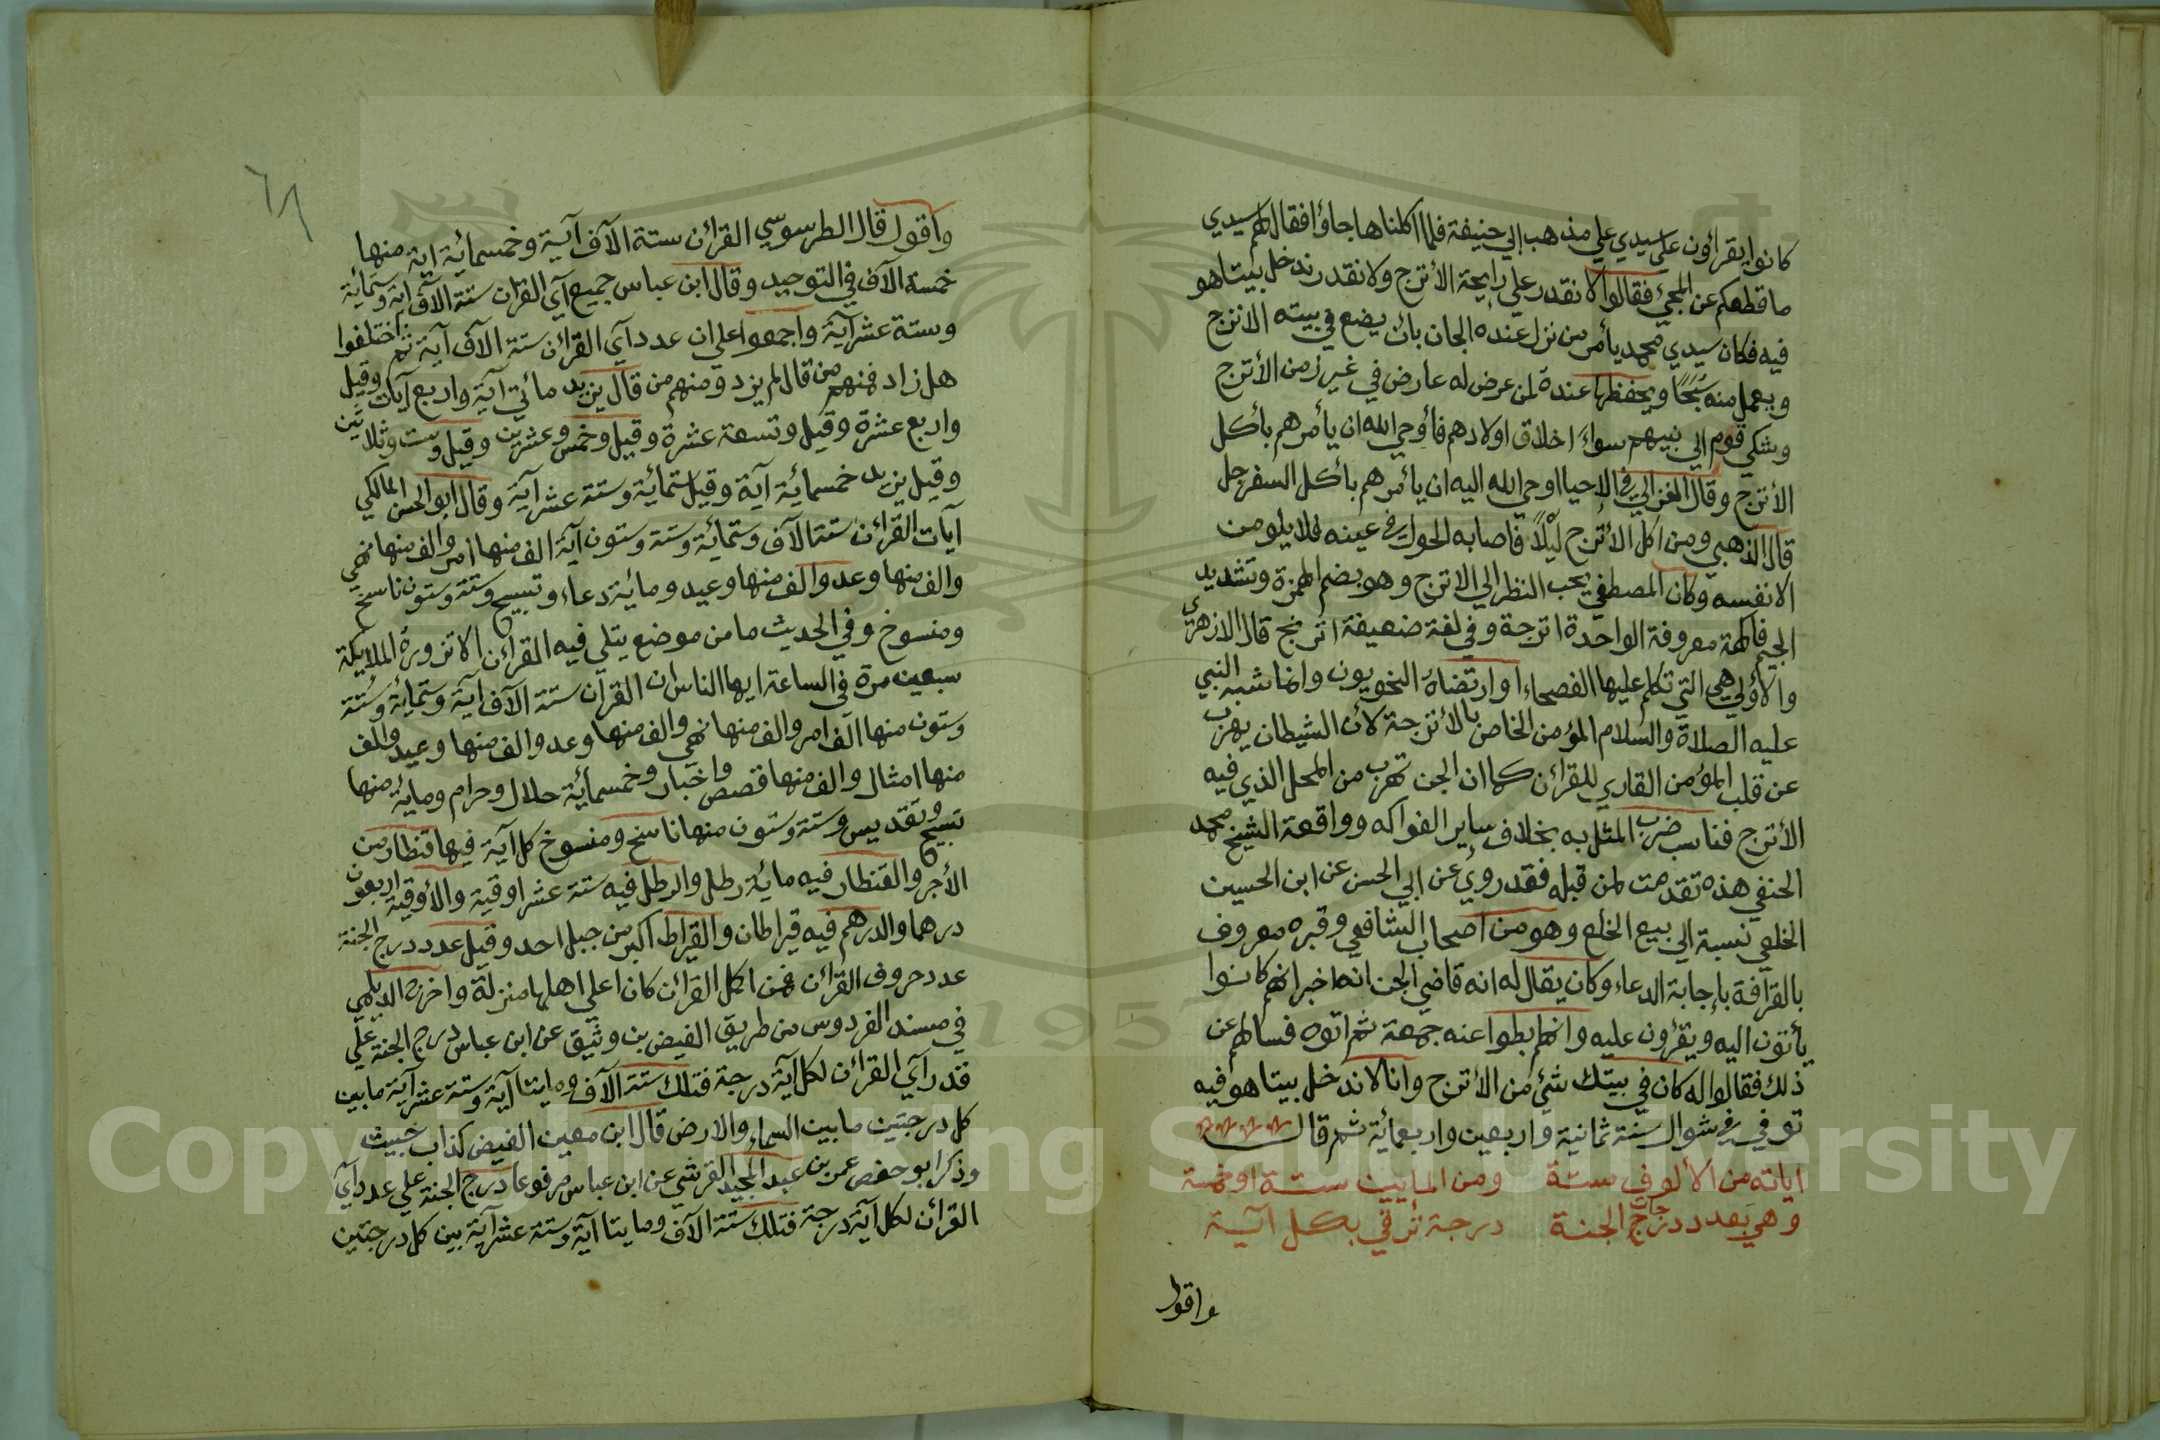 كانوا يقرأون علي سيدي علي مذهب ابي حنيفة فلما اكلناها جاؤا فقال لهم سيدي
ما قطعكم عن المجئ فقالوا لا نقدر علي رايحة الأترج ولا نقدر ندخل بيتا هو
فيه فكان سيدي محمد يأمر من نزل عنده الجان بان يضع في بيته الاترج
ويعمل منه سُبَحًا ويحفظها عنده لمن عرض له عارض في غير زمن الأترج
وشكي قوم الي نبيهم سواء اخلاق اولادهم فأوحي الله ان يأمرهم بأكل
الأترج وقال الغزالي في الاحيا اوحي الله اليه ان يأمرهم بأكل السفرجل
قال الذهبي ومن اكل الأترج ليْلاً فاصابه الحول في عينه فلا يلومن
الا نفسه وكان المصطفي يحب النظر الي الاترج وهو بضم الهمزة وتشديد
الجيم فاكهة معروفة الواحدة اترجة وفي لغة ضعيفة اترنج قال الازهري
والأولي هي التي تكلم عليها الفصحاء وارتضاه النحويون وانما شبه النبي
عليه الصلاة والسلام المؤمن الخاص بالأترجة لأن الشيطان يهرب
عن قلب المؤمن القاري للقرائن كما ان الجن تهرب من المحل الذي فيه
الأترج فناسب ضرب المثل به بخلاف ساير الفواكه وواقعة الشيخ محمد
الحنفي هذه تقدمت لمن قبله فقد روي عن ابي الحسن عن ابن الحسين
الخلعي نسبة الي بيع الخلع وهو من اصحاب الشافعي وقبره معروف
بالقرافة بإجابة الدعاء وكان يقال له انه قاضي الجن انه اخبر انهم كانوا
يأتون اليه ويقرؤن عليه وانهم بطوا عنه جمعة ثم اتوه فسالهم عن
ذلك فقالوا له كان في بيتك شئ من الأترج وانا لا ندخل بيتا هو فيه
توفي في شوال سنة ثمانية واربعين واربعمائة ثم قال
اياته من الألوف ستة ومن المايين ستة او خمسة
وهي بعدد درجات الجنة درجة ترقي بكل آية
واقول
واقول قال الطرسوسي القرائن ستة الآف آية وخمسمائية اية منها
خمسة الآف في التوحيد وقال ابن عباس جميع آي القران ستة الآف آية وستماية
وستة عشر آية واجمعوا علي ان عدد آي القرائن ستة الآف آية ثم اختلفوا
هل زاد فمنهم من قال لم يزد ومنهم من قال يزيد مائتي آية واربع آيات وقيل
واربع عشرة وقيل وتسعة عشرة وقيل وخمس وعشرين وقيل وست وثلاثين
وقيل يزيد خمسمائية آية وقيل ستمائية وستة عشر آية وقال ابو الحسن المالكي
آيات القرائن ستة الآف وستمائية وستة وستون آية الف منها امر والف منها نهي
والف منها وعد والف منها وعيد ومائية دعاء وتسبيح وستة وستون ناسخ
ومنسوخ وفي الحديث ما من موضع يتلي فيه القرائن الا تزوره الملايكة
سبعين مرة في الساعة ايها الناس ان القرآن ستة الآف آية وستماية وستة
وستون منها الف امر والف منها نهي والف منها وعد والف منها وعيد والف
منها امثال والف منها قصص واخبار وخمسمائية حلال وحرام وماية منها
تسبيح وتقديس وستة وستون منها ناسخ ومنسوخ كل آية فيها قنطار من
الأجر والقنطار فيه مائة رطل والرطل فيه ستة عشر اوقية والأوقية اربعون
درهما والدرهم فيه قيراطان والقيراط اكبر من جبل احد وقيل عدد درج الجنة
عدد حروف القرائن فمن اكل القرائن كان اعلي اهلها منزلة واخرج الديلمي
في مسند الفردوس من طريق الفيض بن وثيق عن ابن عباس درج الجنة علي
قدر آي القرائن لكل آية درجة فتلك ستة الآف ومايتا آية وستة عشر آية ما بين
كل درجتين ما بين السماء والارض قال ابن معين الفيض كذاب خبيث
وذكر ابو حفص عمر بن عبد المجيد القرشي عن ابن عباس مرفوعا درج الجنة علي عدد آي
القرائن لكل آية درجة فتلك ستة الآف ومايتا آية وستة عشر آية بين كل درجتين
1957
Copyright © King Saud University